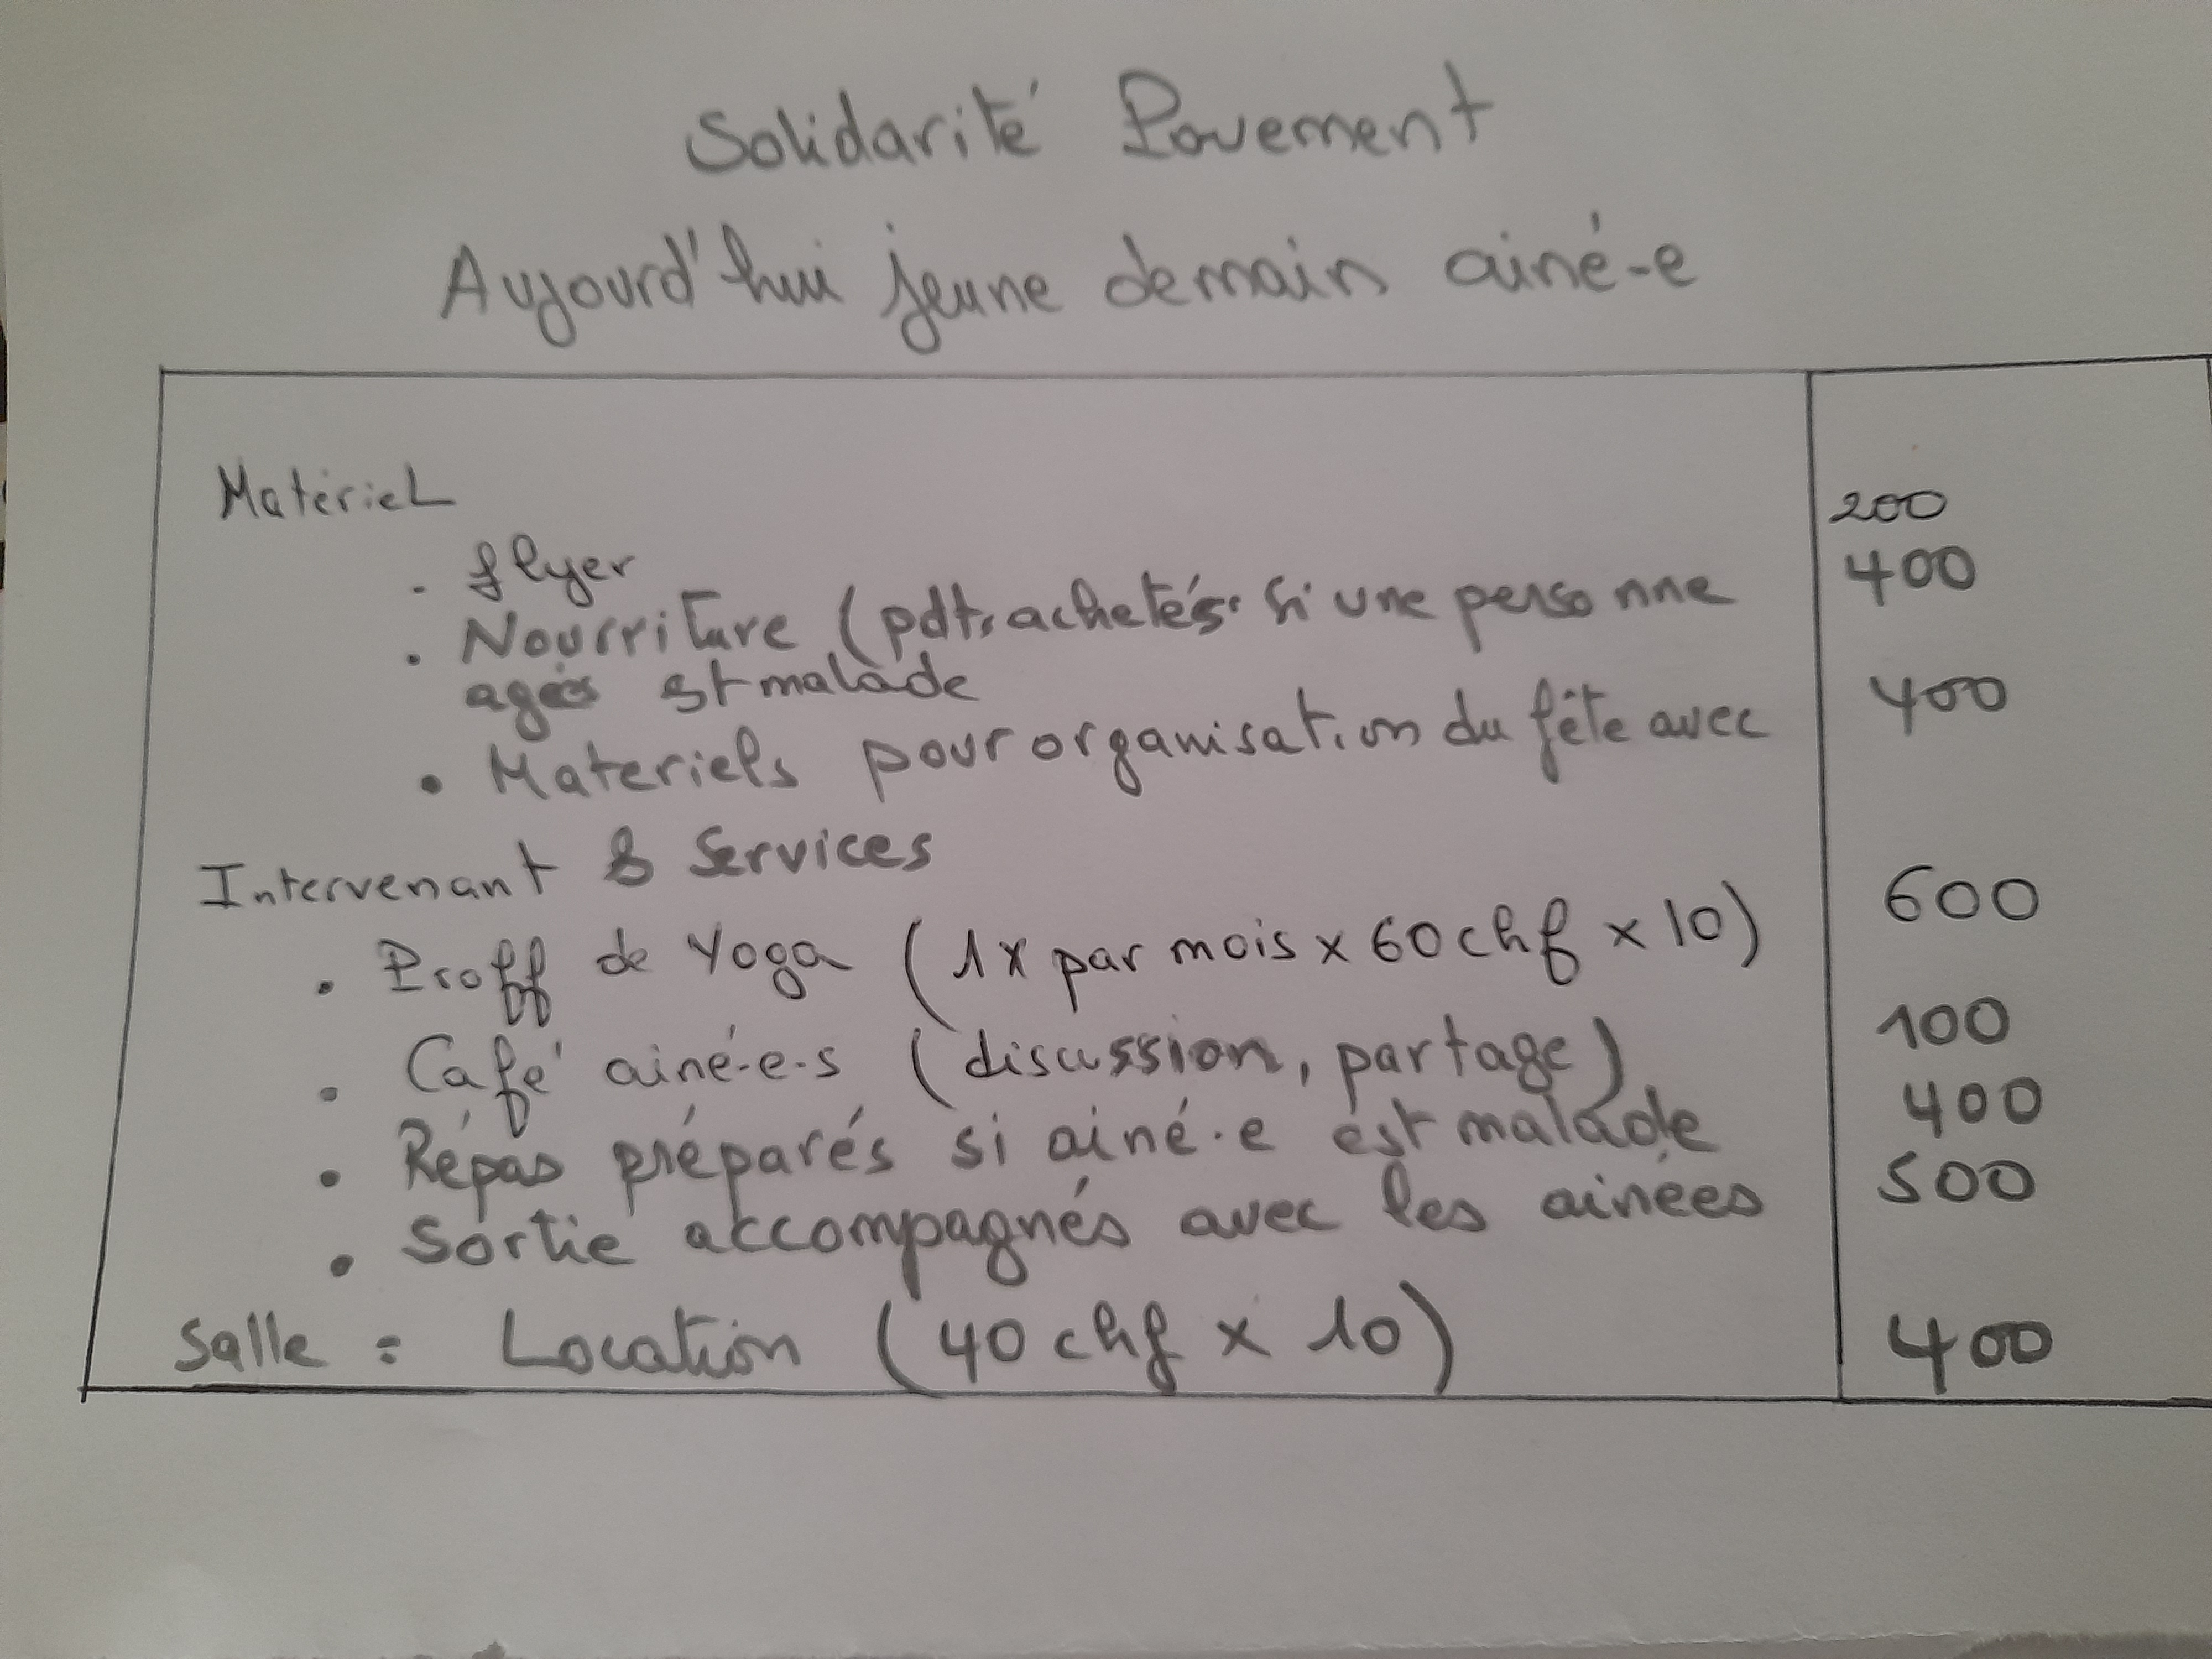 Solidarité Pavement
Aujourd'hui jeune demain ainé-e
Matériel
200
. flyer
400
. Nourriture (pdts achetés si une personne
agées est malade
400
• Materiels pour organisation du fête avec
Intervenant & Services
600
. Proff de Yoga (1x par mois x 60 chf x 10)
100
. Café ainé-e-s (discussion, partage)
400
• Répas préparés si ainé-e est malade
500
• Sortie accompagnés avec les ainées
Salle = Location (40 chf x 10)
400